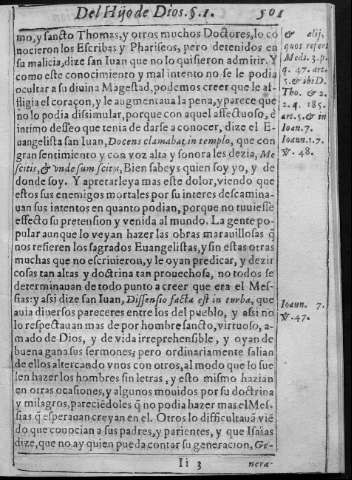 Del Hijo de Dios. §. 1. 501
mo, y sancto Thomas, y otros muchos Doctores, lo co
nocieron los Escribas y Phariseos, pero detenidos en
su malicia, dize san Iuan que no lo quisieron admitir. Y
como este conocimiento y mal intento no se le podia
ocultar a su diuina Magestad, podemos creer que le af-
fligia el coraçon, y le augmentaua la pena, y parece que
no lo podia dissimular, porque con aquel affectuoso, è
intimo desseo que tenia de darse a conocer, dize el E
uangelista san Iuan, Docens clamabat in templo, que con
gran sentimiento y con voz alta y sonora les dezia, Me
scitis, & vnde sum scitis, Bien sabeys quien soy yo, y de
donde soy. Y apretarleya mas este dolor, viendo que
estos sus enemigos mortales por su interes descamina-
uan sus intentos en quanto podian, porque no tuuiesse
effecto su pretension y venida al mundo. La gente po-
pular aunque lo veyan hazer las obras marauillosas q̃
nos refieren los sagrados Euangelistas, y sin estas otras
muchas que no escriuieron, y le oyan predicar, y dezir
cosas tan altas y doctrina tan prouechosa, no todos se
determinauan de todo punto a creer que era el Mes-
sias: y assi dize san Iuan, Dissensio facta est in turba, que
auia diuersos pareceres entre los del pueblo, y assi no
lo respectauan mas de por hombre sancto, virtuoso, a-
mado de Dios, y de vida irreprehensible, y oyan de
buena gana sus sermones; pero ordinariamente salian
de ellos altercando vnos con otros, al modo que lo sue
len hazer los hombres sin letras, y esto mismo hazian
en otras ocasiones, y algunos mouidos por su doctrina
y milagros, pareciendoles q̃ no podia hazer mas el Mes-
sias q̃ esperauan creyan en el. Otros lo difficultauã viē
do que conocian a sus padres, y parientes, y que Isaias
dize, que no ay quien pueda contar su generacion, Ge-
Ii 3 nera-
& alij,
quos refert
Medi. 3. p.
q. 47. art.
5. & ibi D.
Tho. & 2.
2. q. 185.
art. 5. & in
Ioan. 7.
Ioann. 1. 7.
℣. 48.
Ioann. 7.
℣. 47.